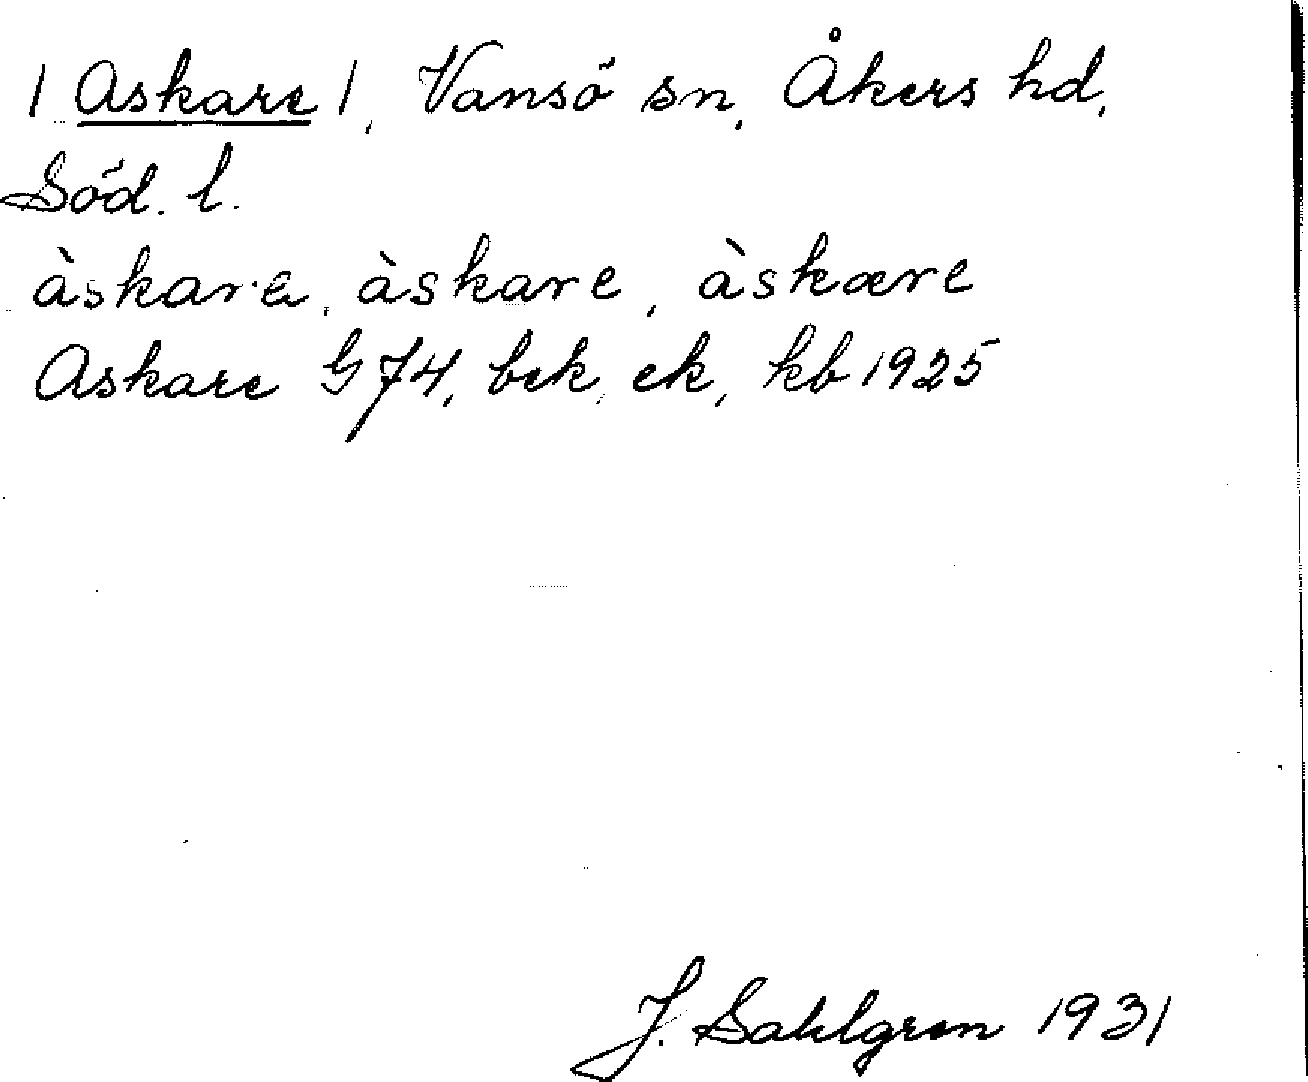 / Askare /, Vansö sn, Åkers hd,
Söd. l.
àskara, àskare, àskære
Askare G 74, bek, ek, kb 1925
J. Sahlgren 1931